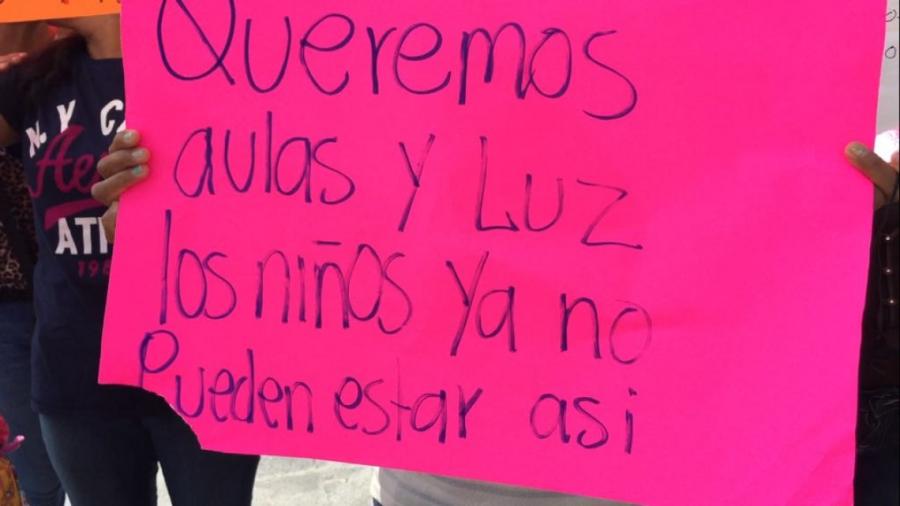 Queremos
aulas y Luz
los niños ya no
Pueden estar asi
N. Y. C.
Aer
ATH
198